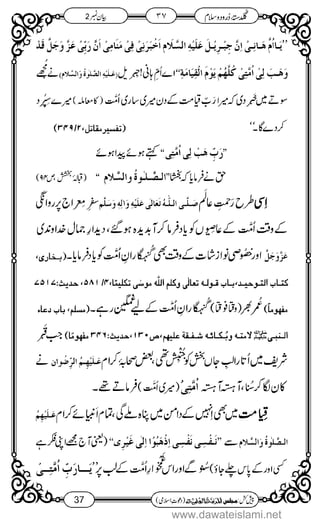 گلدستہ دُرود وسلام ٣٧ بیان نمبر 2
’’يَا اُمَّ هَانِئٍ اِنَّ جِبْرِيْلَ عَلَيْهِ السَّلَام اَخْبَرَنِىْ فِىْ مَنَامِىْ اَنَّ رَبِّىْ عَزَّ وَجَلَّ قَدْ
وَهَبَ لِىْ اُمَّتِىْ كُلَّهُمْ يَوْمَ الْقِيَامَةِ‘‘ اے اُمِّ ہانی! جبریل (عَلَيْهِ الصَّلٰوةُ وَالسَّلَام) نے مجھے
سوتے میں خبر دی کہ میرا رَبّ قیامت کے دن میری ساری اُمَّت (کا معاملہ) میرے سپرد
کردے گا۔‘‘ (تفسیر مقاتل، ٢/٣٤٩)
”رَبِّ هَبْ لِىْ اُمَّتِى“ کہتے ہوئے پیدا ہوئے
حق نے فرمایا کہ بخشا ”الصَّلٰوةُ والسَّلام“ (قبالہ بخشش، ص٩٤)
اِسی طرح رحمتِ عالَم صَلَّى اللهُ تَعَالٰى عَلَيْهِ وَاٰلِهٖ وَسَلَّم سفرِ مِعراج پر روانگی
کے وقت اُمَّت کے عاصیوں کو یاد فرما کر آبدیدہ ہوگئے، دیدارِ جمالِ خداوندی
عَزَّوَجَلَّ اور خصوصی نوازشات کے وقت بھی گنہگارانِ اُمَّت کو یاد فرمایا۔ (بخاری،
کتاب التوحید، باب قوله تعالٰی وکلم الله موسٰی تکلیما، ٤/٥٨١، حدیث: ٧٥١٧
مفہوماً) عُمر بھر (وقتاً فوقتاً) گنہگارانِ اُمَّت کے لیے غمگین رہے۔ (مسلم، باب دعاء
النبیﷺ لامته وبکائه شفقة علیهم، ص١٣٠، حدیث: ٣٤٦ مفہوماً) جب قَبْر
شریف میں اُتارا لبِ جاں بخش کو جُنبش تھی، بعض صحابۂ کرام عَلَيْهِمُ الرِّضْوَان نے
کان لگا کر سُنا، آہستہ آہستہ اُمَّتِىْ (میری اُمَّت) فرماتے تھے۔
قیامت میں بھی انہیں کے دامن میں پناہ ملے گی، تمام اَنبیائے کرام عَلَيْهِمُ
الصَّلٰوةُ وَالسَّلَام سے ’’نَفْسِىْ نَفْسِىْ اِذْهَبُوْا اِلٰى غَيْرِىْ‘‘ (یعنی آج مجھے اپنی فکر ہے
کسی اور کے پاس چلے جاؤ) سُنو گے اور اس غمخوارِ اُمَّت کے لب پر ’’يَارَبِّ اُمَّتِىْ
37
www.dawateislami.net